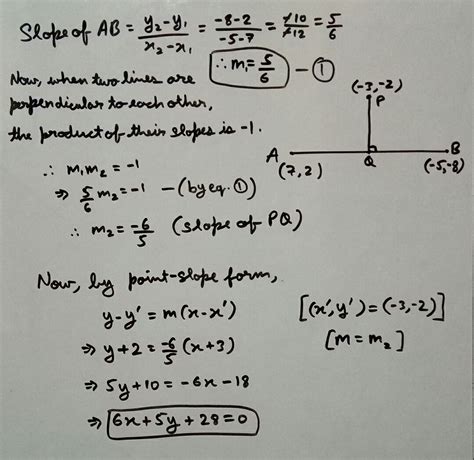 Slope of AB = (y₂-y₁)/(x₂-x₁) = (-8-2)/(-5-7) = (-10)/(-12) = 5/6
∴ m₁ = 5/6 — ①
Now, when two lines are
perpendicular to each other,
the product of their slopes is -1.
(-3,-2)
P
A
Q
B
(7,2)
(-5,-8)
∴ m₁m₂ = -1
⇒ 5/6 m₂ = -1 — (by eq. ①)
∴ m₂ = -6/5 (slope of PQ)
Now, by point-slope form,
y-y' = m(x-x') [(x',y') = (-3,-2)]
⇒ y+2 = -6/5 (x+3) [m = m₂]
⇒ 5y+10 = -6x-18
⇒ 6x+5y+28=0